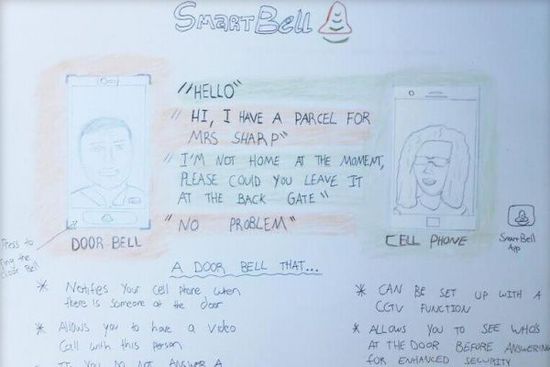 SMARTBELL
"HELLO"
"HI, I HAVE A PARCEL FOR
MRS SHARP"
"I'M NOT HOME AT THE MOMENT,
PLEASE COULD YOU LEAVE IT
AT THE BACK GATE"
"NO PROBLEM"
Press to
ring the
door Bell
DOOR BELL
CELL PHONE
SmartBell
App
A DOOR BELL THAT...
* Notifies Your cell phone when
there is someone at the door
* Allows you to have a video
Call with this person
* IF YOU DO NOT ANSWER A
* CAN BE SET UP WITH A
CCTV FUNCTION
* ALLOWS YOU TO SEE WHO'S
AT THE DOOR BEFORE ANSWERING
FOR ENHANCED SECURITY